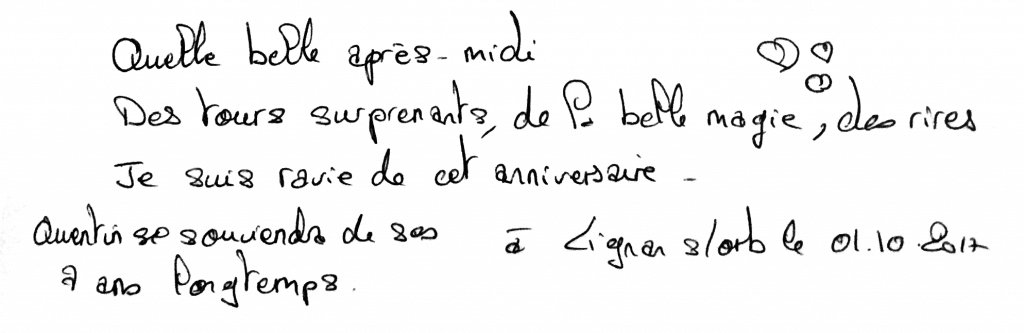 Quelle belle après-midi
Des tours surprenants, de la belle magie, des rires
Je suis ravie de cet anniversaire -
Quentin se souviendra de ses
7 ans longtemps.
à Lignan s/orb le 01.10.2017